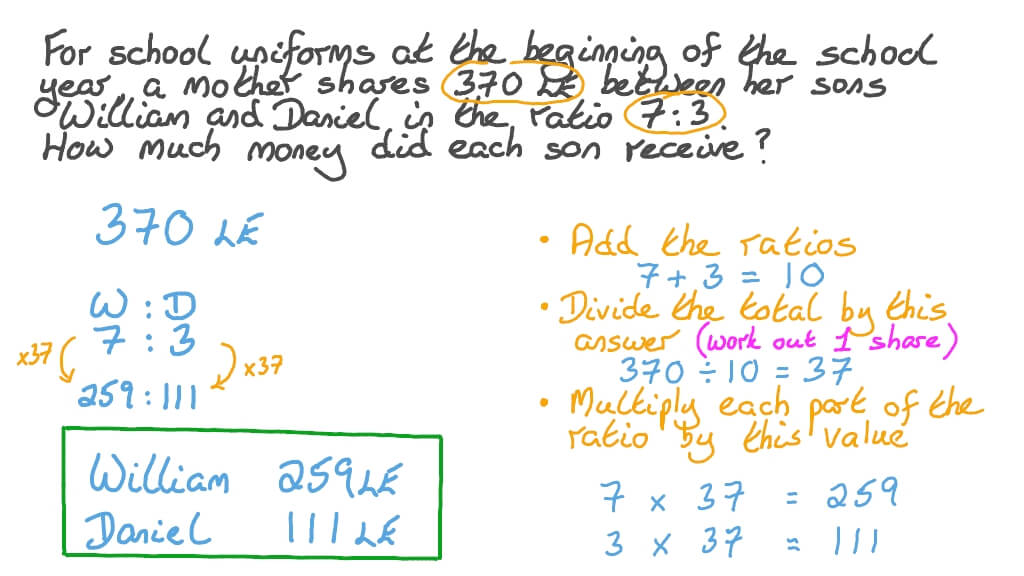 For school uniforms at the beginning of the school
year, a mother shares 370 LE between her sons
William and Daniel in the ratio 7:3.
How much money did each son receive?
370 LE
W : D
7 : 3
x37
x37
259 : 111
William 259 LE
Daniel 111 LE
• Add the ratios
7 + 3 = 10
• Divide the total by this
answer (work out 1 share)
370 ÷ 10 = 37
• Multiply each part of the
ratio by this value
7 x 37 = 259
3 x 37 = 111